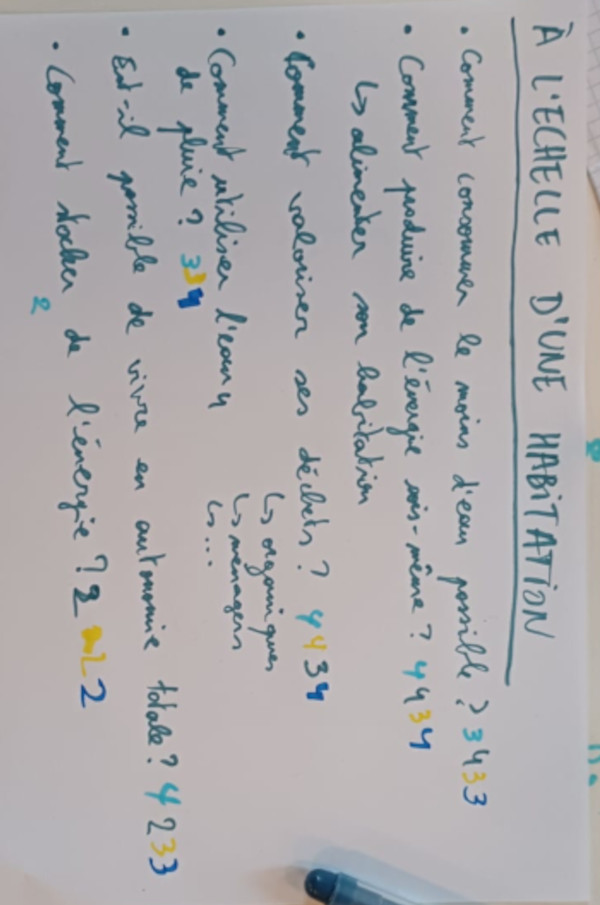 À L'ECHELLE D'UNE HABITATION
• Comment consommer le moins d'eau possible ? 3 4 3 3
• Comment produire de l'énergie sois-même ? 4 4 3 4
↳ alimenter son habitation
• Comment valoriser ses déchets ? 4 4 3 4
↳ organiques
↳ ménagers
↳ ...
• Comment utiliser l'eau
de pluie ? 3 3 4
• Est-il possible de vivre en autonomie totale ? 4 2 3 3
• Comment stocker de l'énergie ? 2 2 2
2